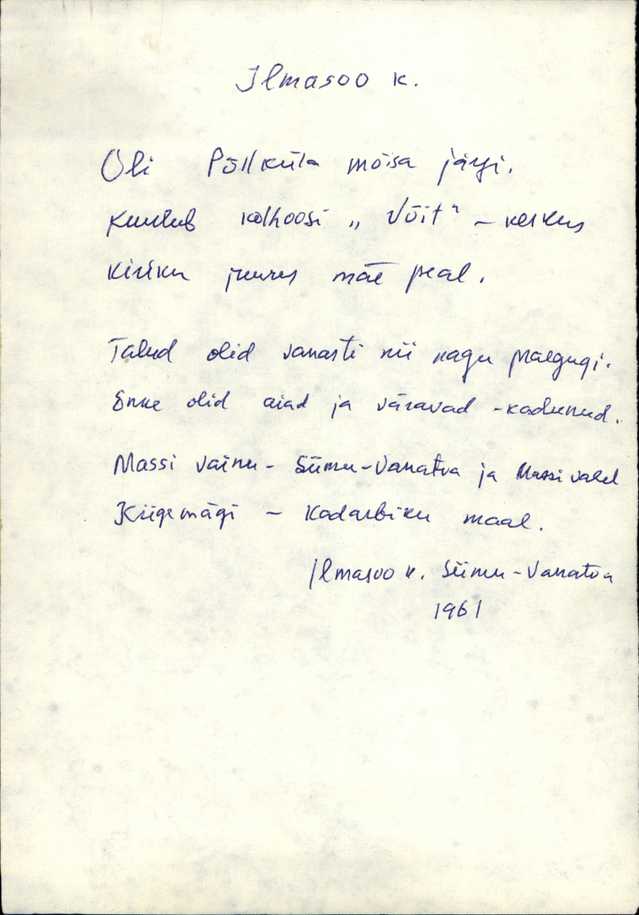 Ilmasoo k.
Oli Põllküla mõisa järgi.
Kuulub kolhoosi „Võit" – keskus
kiriku juures mäe peal.
Talud olid vanasti nii nagu praegugi.
Enne olid aiad ja väravad – kadunud.
Massi vainu – Siimu-Vanatoa ja Massi vahel
Kiigemägi – Kadarbiku maal.
Ilmasoo k. Siimu-Vanatoa
1961